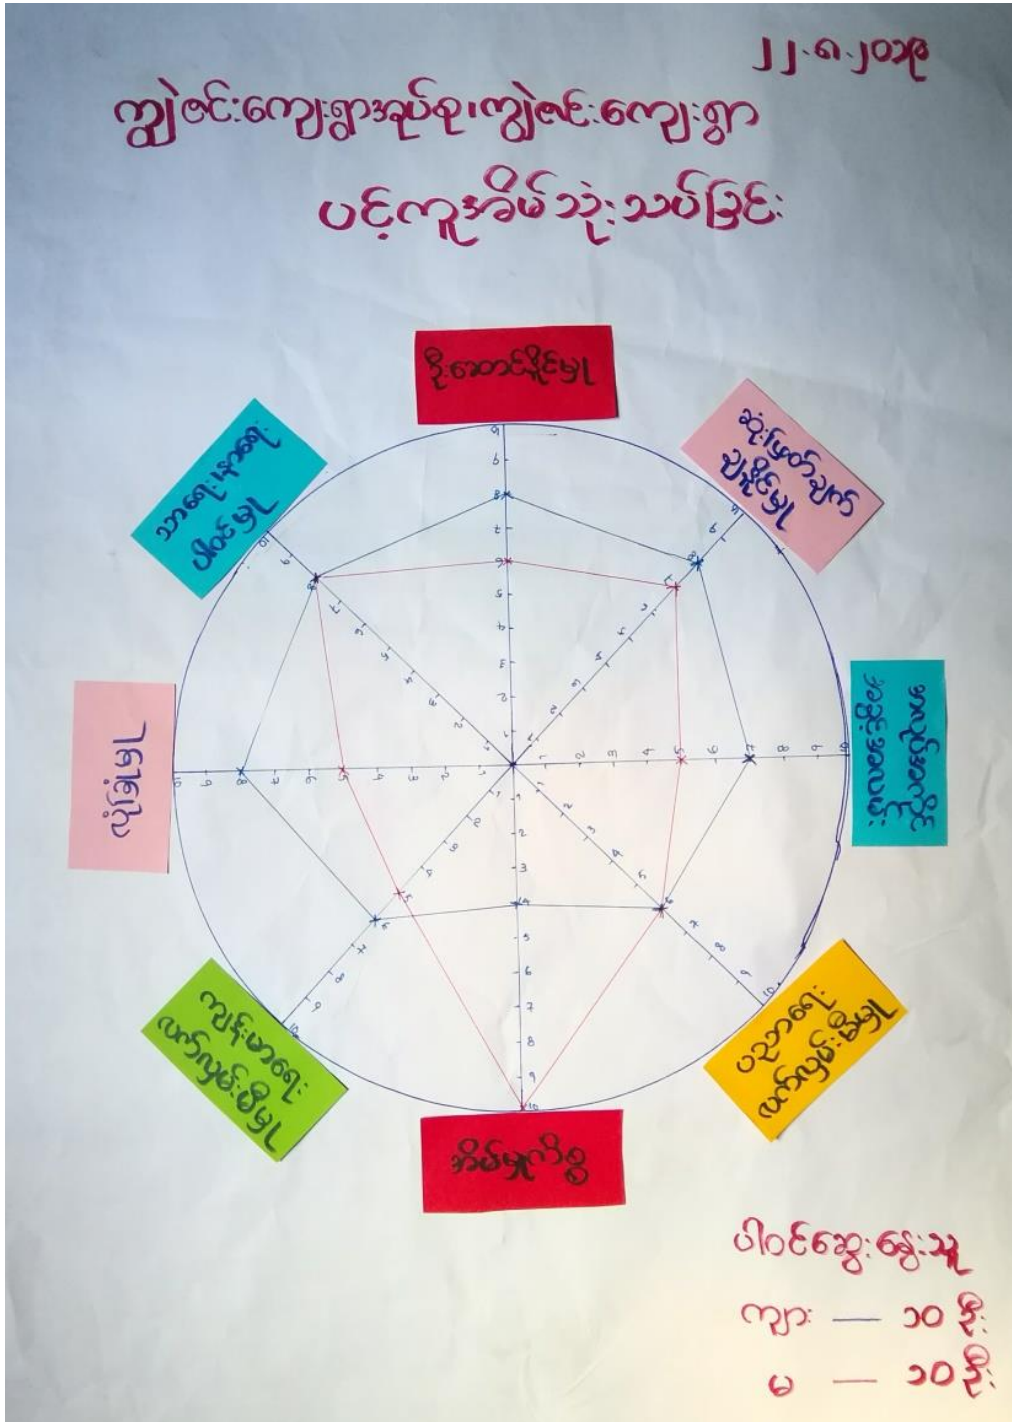 ၂၂.၈.၂၀၁၉
ကျွဲဇင်းကျေးရွာအုပ်စု၊ကျွဲဇင်းကျေးရွာ
ပင့်ကူအိမ်သုံးသပ်ခြင်း
ဦးဆောင်နိုင်မှု
ဆုံးဖြတ်ချက်
ချနိုင်မှု
ပညာရေး
လက်လှမ်းမီမှု
အိမ်မှုကိစ္စ
ကျန်းမာရေး
လက်လှမ်းမီမှု
လုံခြုံမှု
သာရေး၊နာရေး
ပါဝင်မှု
ပါဝင်ဆွေးနွေးသူ
ကျား — ၁၀ ဦး
မ — ၁၀ ဦး